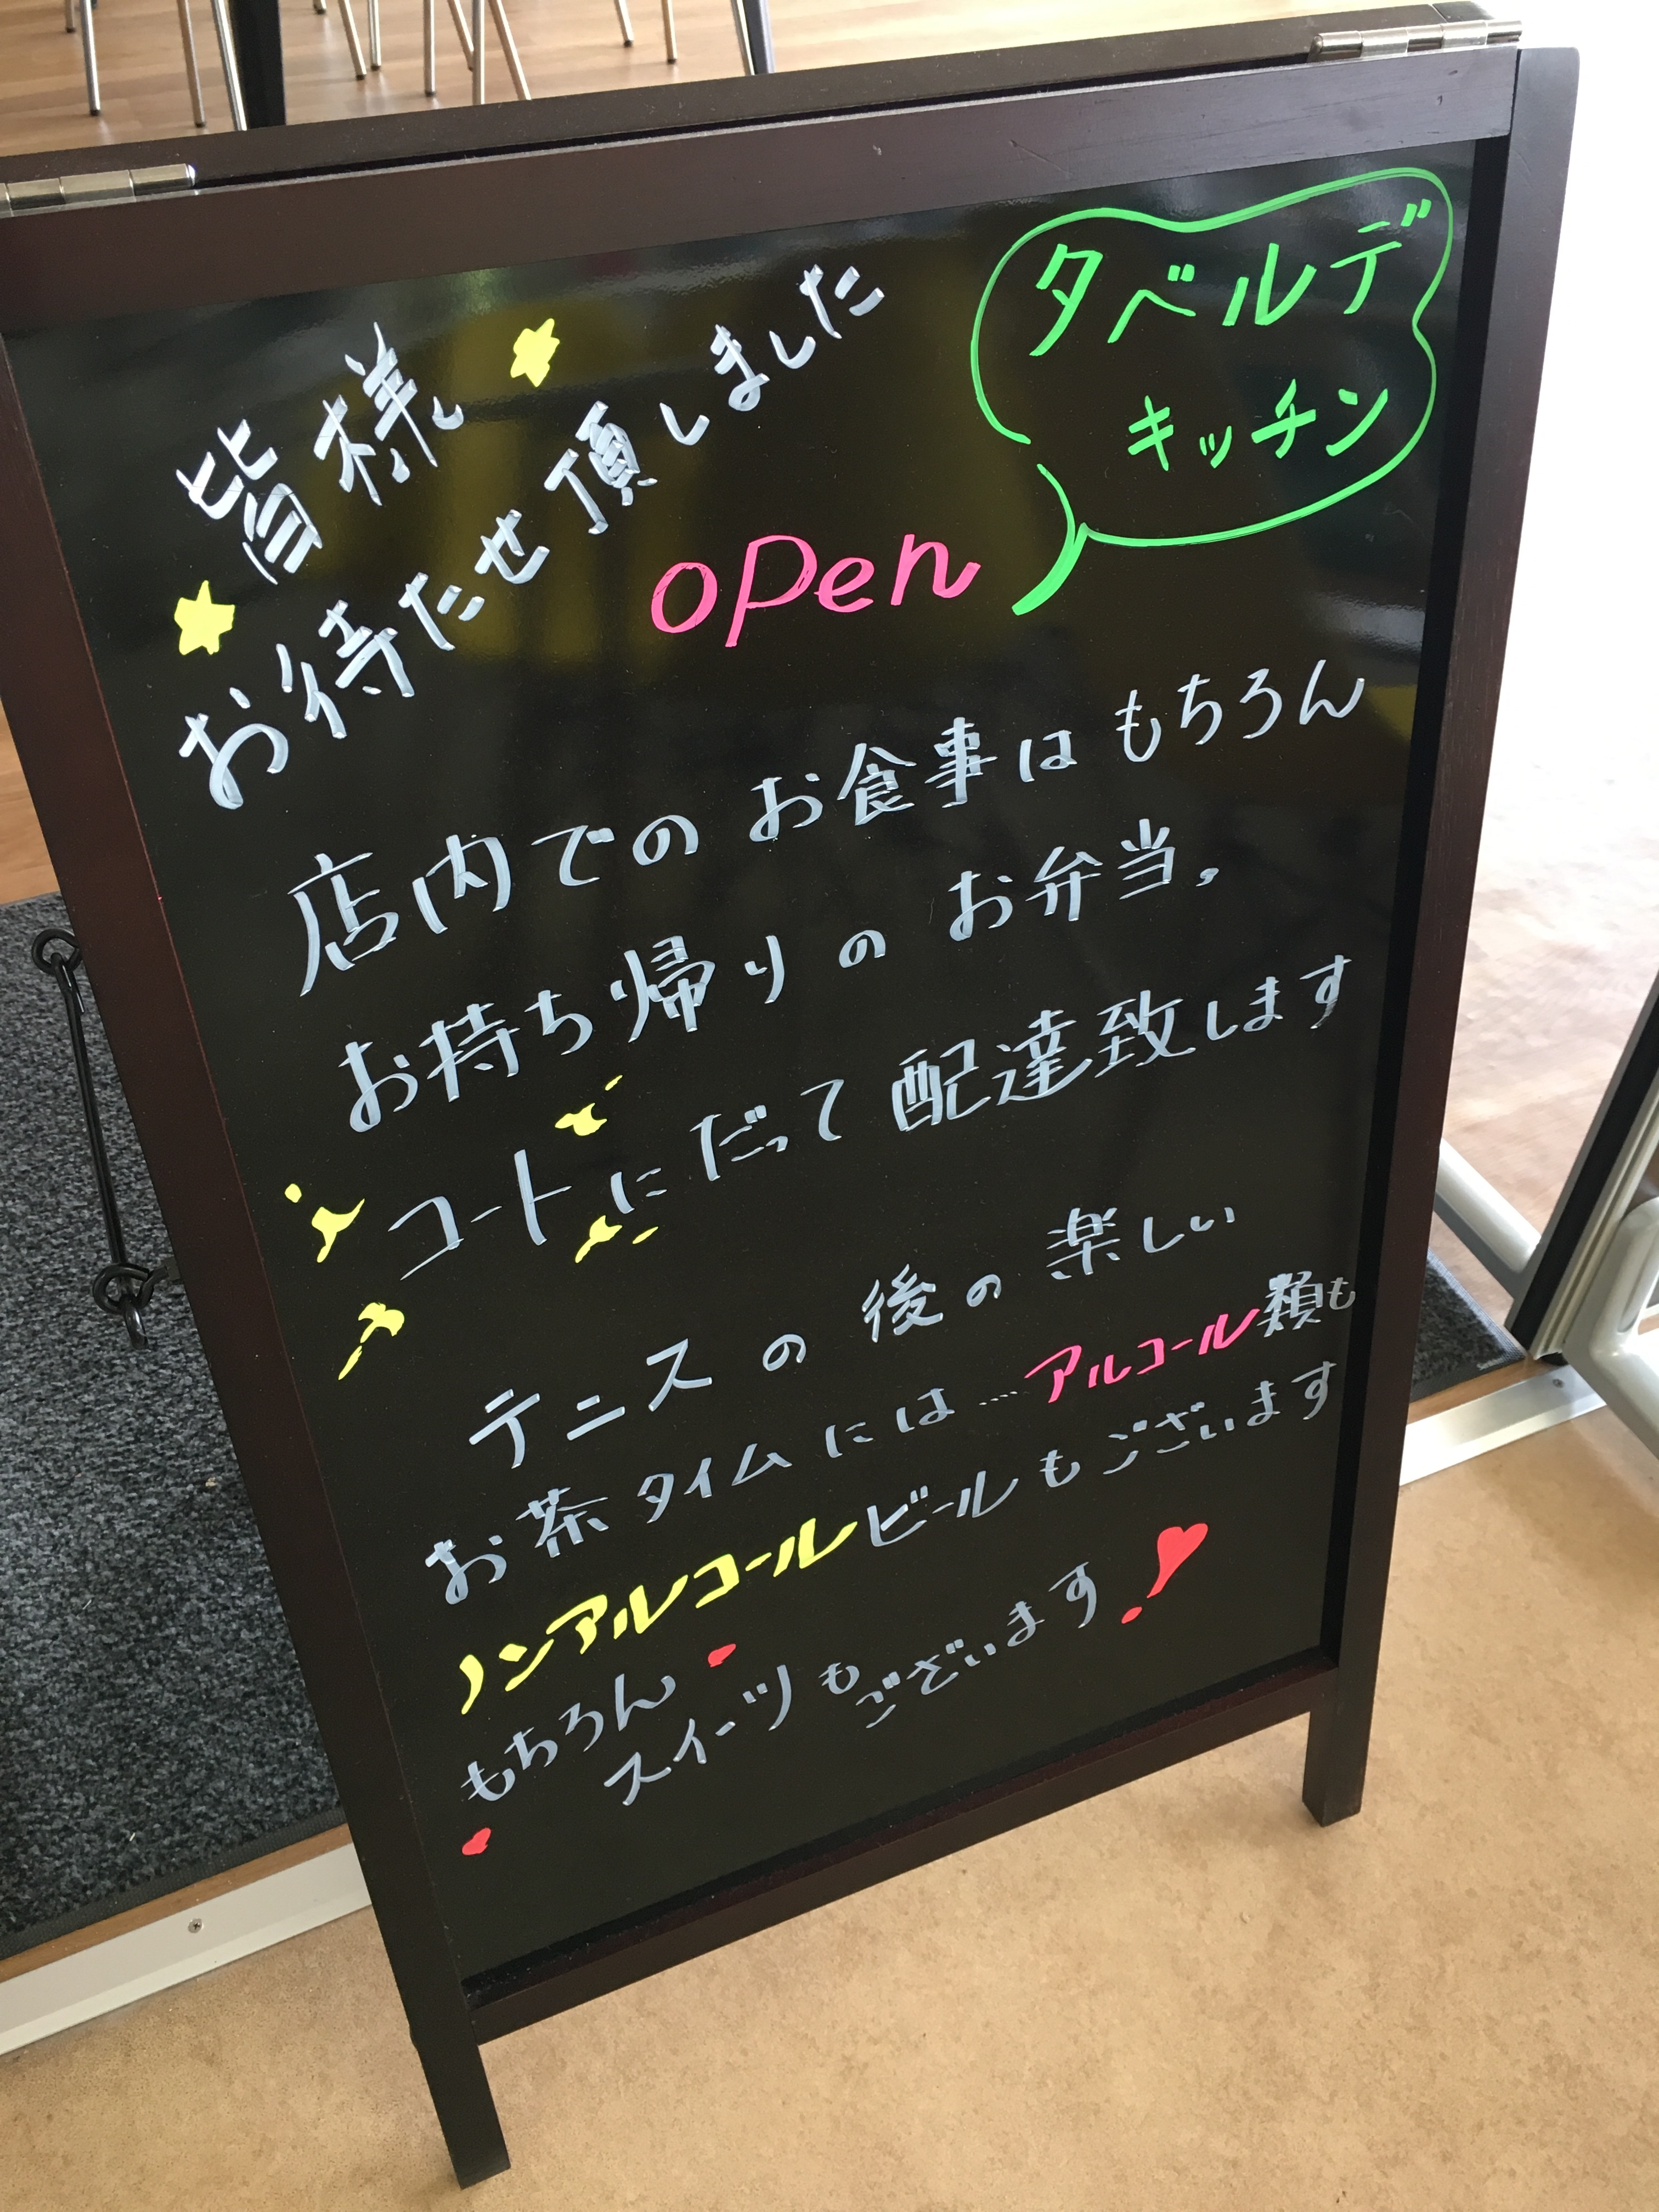 皆様
お待たせ頂しました
タベルデ
キッチン
open
店内でのお食事はもちろん
お持ち帰りのお弁当。
コートにだって配達致します
テニスの後の楽しい
お茶タイムには…アルコール類も
ノンアルコールビールもございます
もちろん
スイーツもございます